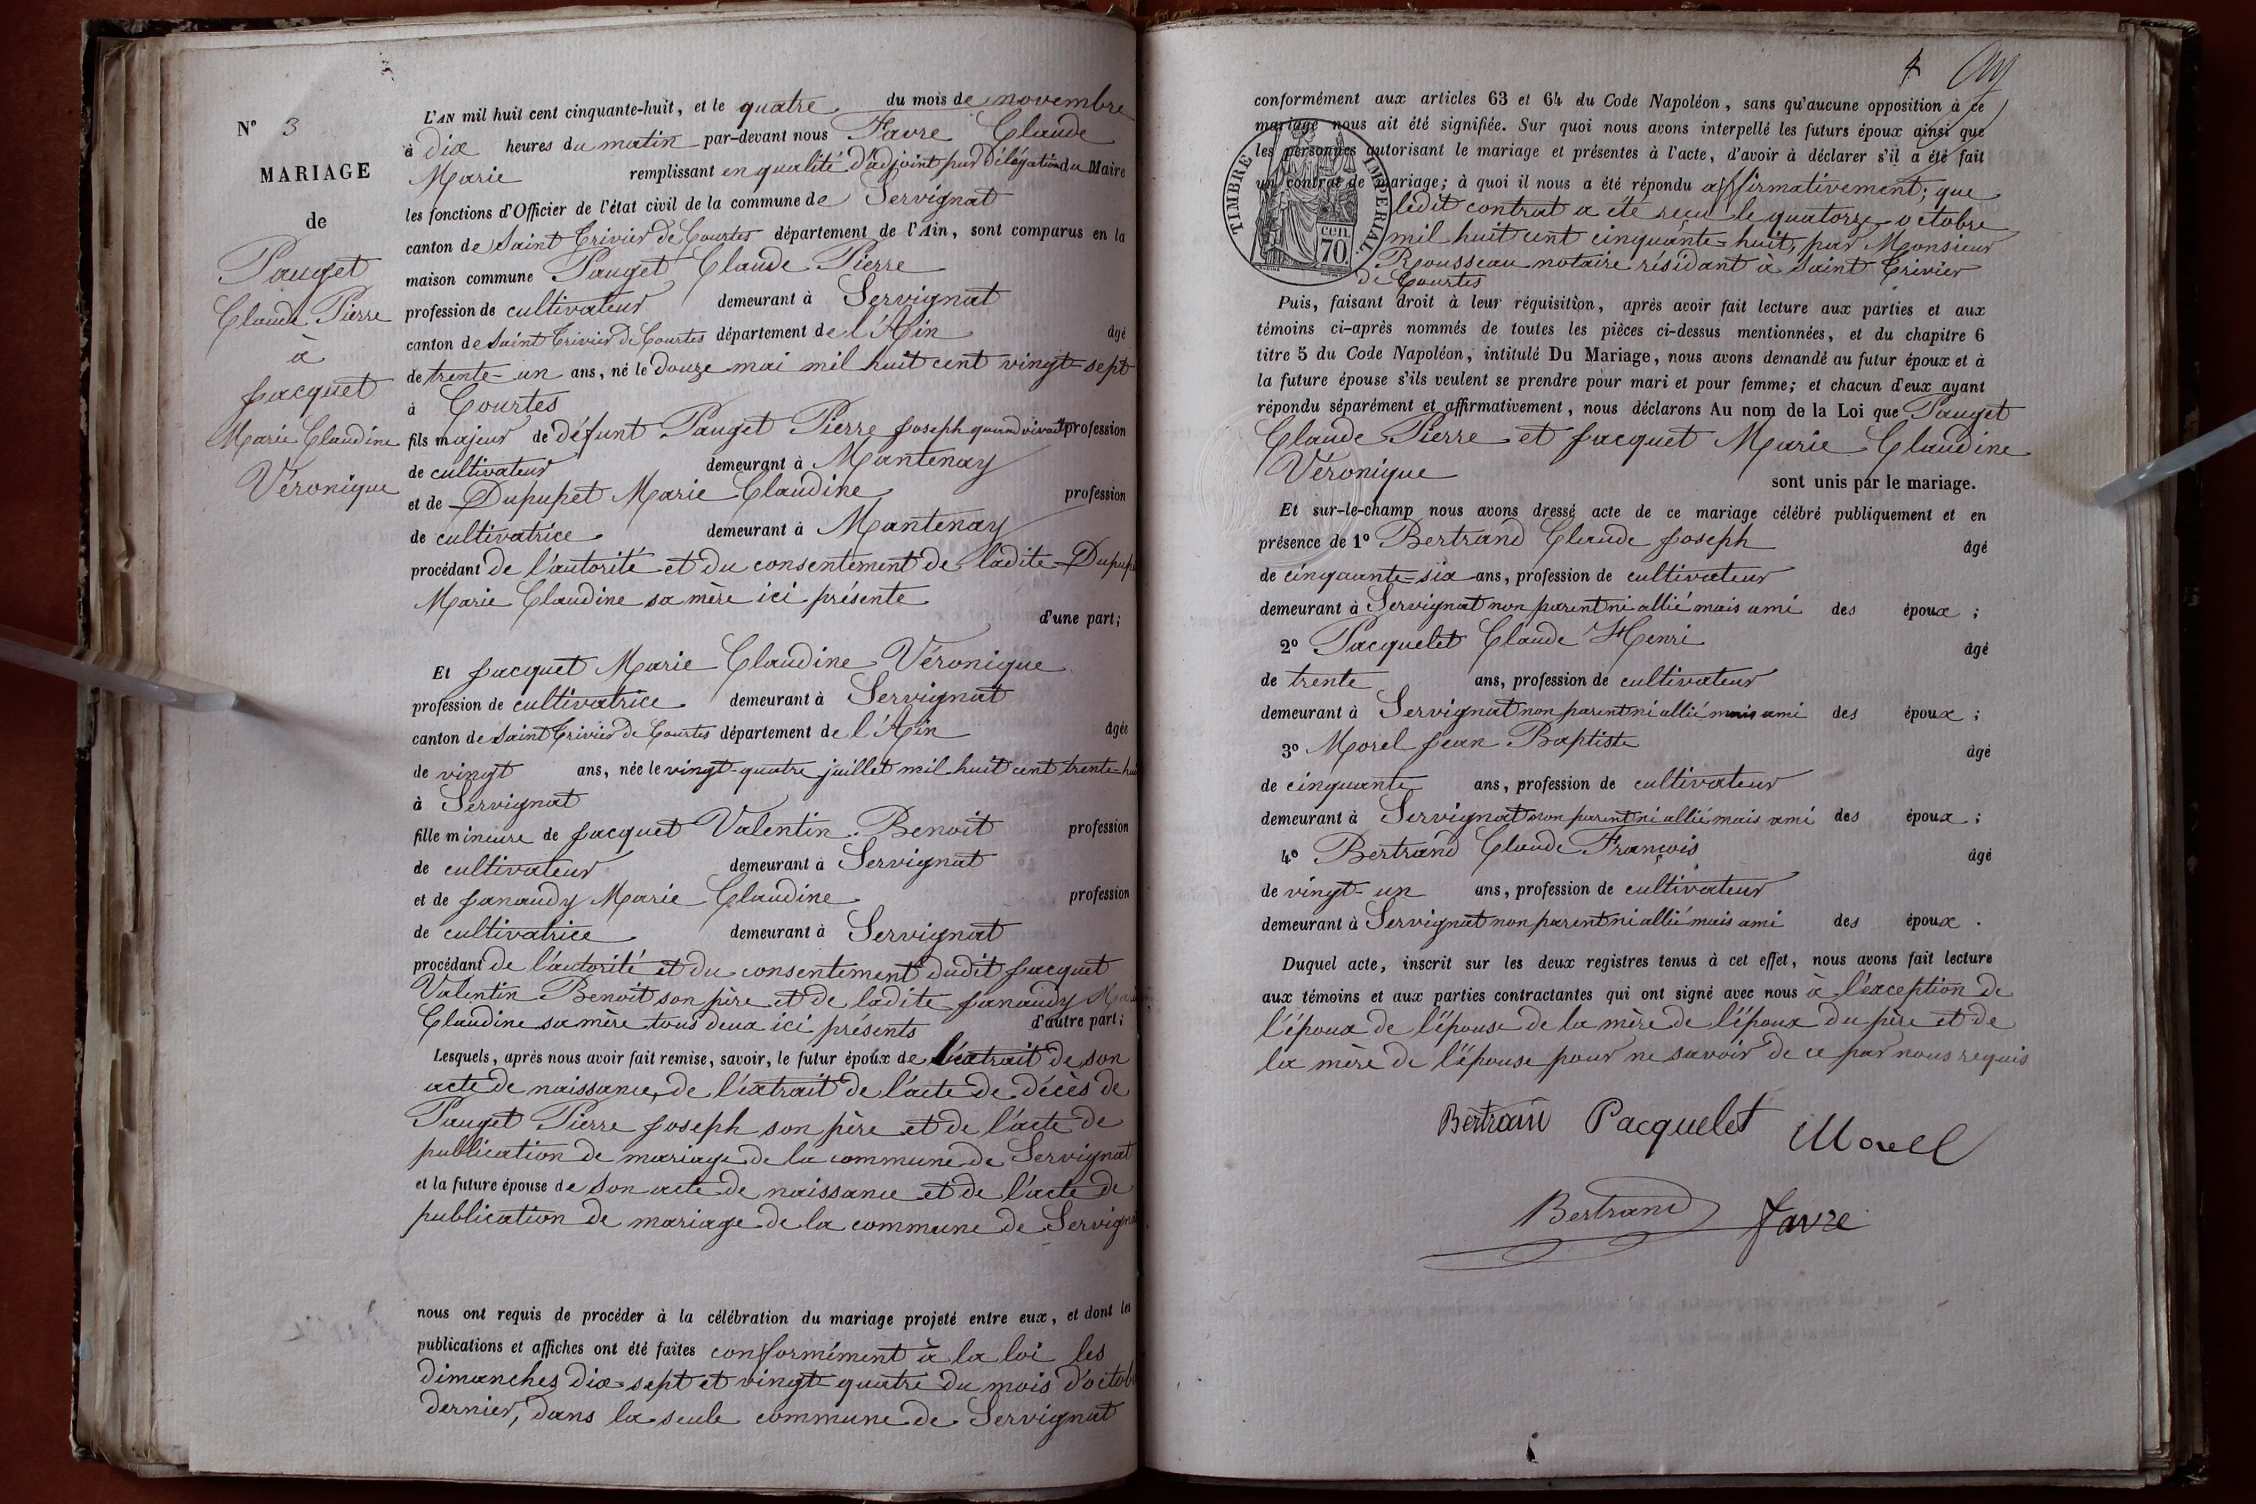 N° 3
MARIAGE
de
Pauget
Claude Pierre
à
Jacquet
Marie Claudine
Véronique
L'AN mil huit cent cinquante-huit, et le quatre du mois de novembre
à dix heures du matin par-devant nous Favre Claude
Marie remplissant en qualité d'adjoint par délégation du Maire
les fonctions d'Officier de l'état civil de la commune de Servignat
canton de Saint Trivier de Courtes département de l'Ain, sont comparus en la
maison commune Pauget Claude Pierre
profession de cultivateur demeurant à Servignat
canton de Saint Trivier de Courtes département de l'Ain âgé
de trente-un ans, né le douze mai mil huit cent vingt-sept
à Courtes
fils majeur de défunt Pauget Pierre Joseph quand vivait profession
de cultivateur demeurant à Mantenay
et de Dupupet Marie Claudine profession
de cultivatrice demeurant à Mantenay
procédant de l'autorité et du consentement de ladite Dupupe
Marie Claudine sa mère ici présente
d'une part;
Et Jacquet Marie Claudine Véronique
profession de cultivatrice demeurant à Servignat
canton de Saint Trivier de Courtes département de l'Ain âgée
de vingt ans, née le vingt-quatre juillet mil huit cent trente-hui
à Servignat
fille mineure de Jacquet Valentin Benoit profession
de cultivateur demeurant à Servignat
et de Janaudy Marie Claudine profession
de cultivatrice demeurant à Servignat
procédant de l'autorité et du consentement dudit Jacquet
Valentin Benoit son père et de ladite Janaudy Ma
Claudine sa mère tous deux ici présents d'autre part;
Lesquels, après nous avoir fait remise, savoir, le futur époux de l'extrait de son
acte de naissance, de l'extrait de l'acte de décès de
Pauget Pierre Joseph son père et de l'acte de
publication de mariage de la commune de Servignat
et la future épouse de son acte de naissance et de l'acte de
publication de mariage de la commune de Servigna
nous ont requis de procéder à la célébration du mariage projeté entre eux, et dont les
publications et affiches ont été faites conformément à la loi les
dimanches dix sept et vingt-quatre du mois d'octob
dernier, dans la seule commune de Servignat
4
conformément aux articles 63 et 64 du Code Napoléon, sans qu'aucune opposition à ce
mariage nous ait été signifiée. Sur quoi nous avons interpellé les futurs époux ainsi que
les personnes autorisant le mariage et présentes à l'acte, d'avoir à déclarer s'il a été fait
un contrat de mariage; à quoi il nous a été répondu affirmativement; que
ledit contrat a été reçu le quatorze octobre
mil huit cent cinquante-huit, par Monsieur
Rousseau notaire résidant à Saint Trivier
de Courtes
TIMBRE IMPÉRIAL
cen.
70.
Puis, faisant droit à leur réquisition, après avoir fait lecture aux parties et aux
témoins ci-après nommés de toutes les pièces ci-dessus mentionnées, et du chapitre 6
titre 5 du Code Napoléon, intitulé Du Mariage, nous avons demandé au futur époux et à
la future épouse s'ils veulent se prendre pour mari et pour femme; et chacun d'eux ayant
répondu séparément et affirmativement, nous déclarons Au nom de la Loi que Pauget
Claude Pierre et Jacquet Marie Claudine
Véronique sont unis par le mariage.
Et sur-le-champ nous avons dressé acte de ce mariage célébré publiquement et en
présence de 1° Bertrand Claude Joseph âgé
de cinquante-six ans, profession de cultivateur
demeurant à Servignat non parent ni allié mais ami des époux ;
2° Pacquelet Claude Henri âgé
de trente ans, profession de cultivateur
demeurant à Servignat non parent ni allié mais ami des époux ;
3° Morel Jean Baptiste âgé
de cinquante ans, profession de cultivateur
demeurant à Servignat non parent ni allié mais ami des époux ;
4° Bertrand Claude François âgé
de vingt-un ans, profession de cultivateur
demeurant à Servignat non parent ni allié mais ami des époux .
Duquel acte, inscrit sur les deux registres tenus à cet effet, nous avons fait lecture
aux témoins et aux parties contractantes qui ont signé avec nous à l'exception de
l'époux de l'épouse de la mère de l'époux du père et de
la mère de l'épouse pour ne savoir de ce par nous requis
Bertrand Pacquelet Morel
Bertrand Favre